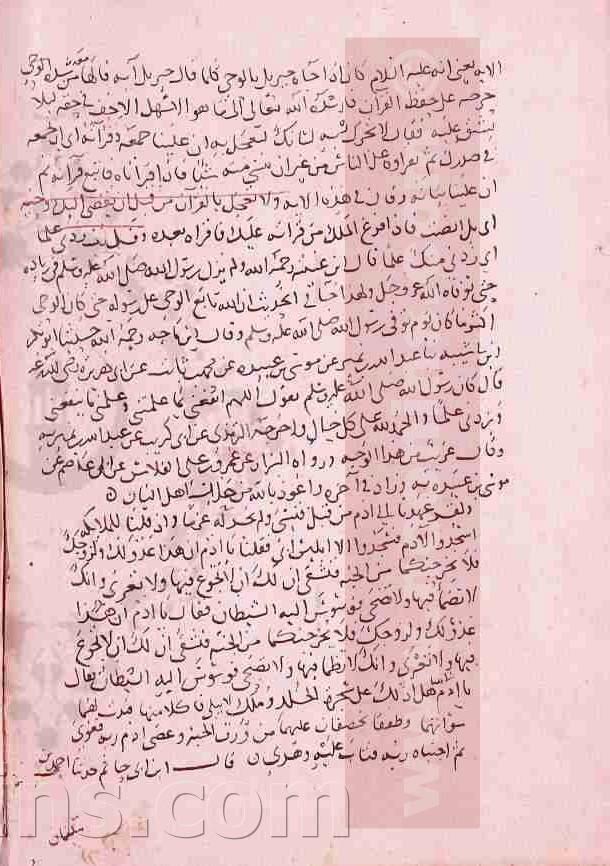 الاية يعني انه عليه السلام كان اذا جاه جبريل بالوحي كلما قال جبريل آية قالها معه من شدة
حرصه على حفظ القران فارشده الله تعالى الى ما هو الاسهل الاخف في حقه ليلا
يشق عليه فقال لا تحرك به لسانك لتعجل به ان علينا جمعه وقرانه اي ان نجمعه
في صدرك ثم تقراه على الناس من غير ان تنسى منه شيا فاذا قراناه فاتبع قرانه ثم
ان علينا بيانه وقال في هذه الاية ولا تعجل بالقران من قبل ان يقضى اليك وحيه
اي بل انصت فاذا فرغ الملك من قراته عليك فاقراه بعده وقل رب زدني علما
اي زدني منك علما قال ابن عيينه رحمه الله ولم يزل رسول الله صلى الله عليه وسلم في زياده
حتى توفاه الله عز وجل ولهذا جا في الحديث ان الله تابع الوحي على رسوله حتى كان الوحي
اكثر ما كان يوم توفي رسول الله صلى الله عليه وسلم وقال ابن ماجه رحمه الله حدثنا ابو بكر
ابن ابي شيبه ثنا عبد الله بن نمير عن موسى بن عبيده عن محمد بن ثابت عن ابي هريره رضي الله عنه
قال كان رسول الله صلى الله عليه وسلم يقول اللهم انفعني بما علمتني وعلمني ما ينفعني
وزدني علما والحمد لله على كل حال واخرجه الترمذي عن ابي كريب عن عبد الله بن نمير به
وقال غريب من هذا الوجه ورواه البزار عن عمرو بن علي الفلاس عن ابي عاصم عن
موسى بن عبيده به وزاد في آخره واعوذ بالله من حال اهل النار
ولقد عهدنا الى ادم من قبل فنسي ولم نجد له عزما واذ قلنا للملايكه
اسجدوا لادم فسجدوا الا ابليس ابى فقلنا يا ادم ان هذا عدو لك ولزوجك
فلا يخرجنكما من الجنه فتشقى ان لك ان لا تجوع فيها ولا تعرى وانك
لا تظما فيها ولا تضحى فوسوس اليه الشيطان فقال يا ادم ان هذا
عدو لك ولزوجك فلا يخرجنكما من الجنه فتشقى ان لك ان لا تجوع
فيها ولا تعرى وانك لا تظما فيها ولا تضحى فوسوس اليه الشيطان فقال
يا ادم هل ادلك على شجره الخلد وملك لا يبلى فاكلا منها فبدت لهما
سواتهما وطفقا يخصفان عليهما من ورق الجنه وعصى ادم ربه فغوى
ثم اجتباه ربه فتاب عليه وهدى قال ابن ابي حاتم حدثنا احمد بن
سنان
ns.com